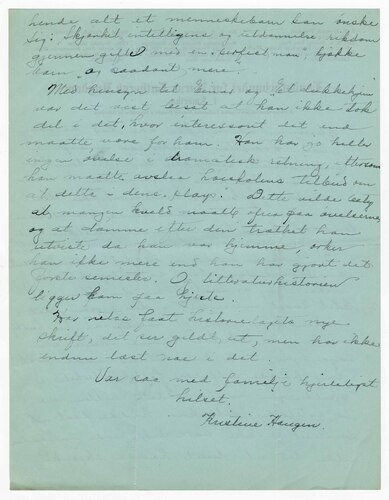 hende alt et menneskebarn kan ønske
sig: Skjønhet, intelligens og uldannelse rikdom
gjennem giftet med en "Leofest man", kjække
barn, "og saadant mere".
Med hensyn til Einar og "Et dukkehjem"
var det vist best at han ikke tok
del i det, hvor interessant det end
maatte være for ham. Han har jo heller
ingen øvelse i dramatisk retning, ettersom
han maatte avslaa høiskolens tilbud om
at delta i dens "play". Dette vilde si
at mangen kveld maatte ofres paa øvelserne,
og at dømme efter den trøthet han
utviste da han var hjemme, orker
han ikke mere end han har gjort det
første semester. Og litteraturhistorien
ligger ham paa hjerte.
Har netop faat historielagets nye
skrift, det ser gildt ut, men har ikke
endnu læst noe i det.
Vær saa med familje hjerteligst
hilset.
Kristine Haugen.